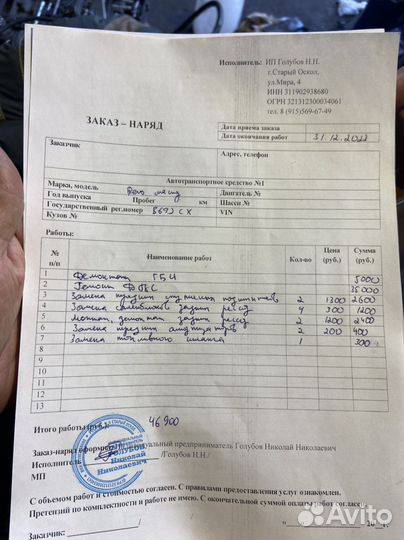 Исполнитель: ИП Голубов Н.Н.
г.Старый Оскол,
ул.Мира, 4
ИНН 311902938680
ОГРН 321312300034061
тел. 8 (915)569-67-49
ЗАКАЗ – НАРЯД
Дата приема заказа
Дата окончания работ 31.12.2022
Заказчик:
Адрес, телефон
Автотранспортное средство №1
Марка, модель
Двигатель №
Год выпуска Пробег км Шасси №
Государственный рег.номер
Кузов № VIN
Работы:
№ п/п Наименование работ Кол-во Цена (руб.) Сумма (руб.)
1 Демонтаж 5000
2 35000
3 Замена 2 1300 2600
4 Замена 4 300 1200
5 2 1200 2400
6 Замена 2 200 400
7 Замена топливного шланга 1 300
8
9
10
11
12
13
Итого работы (руб.): 46900
Заказ-наряд оформил: Индивидуальный предприниматель Голубов Николай Николаевич
Исполнитель /Голубов Н.Н./
МП
Голубов
Николай
Николаевич
С объемом работ и стоимостью согласен. С правилами предоставления услуг ознакомлен.
Претензий по комплектности и работе не имею. С окончательной суммой оплаты работ согласен.
Заказчик:
Avito